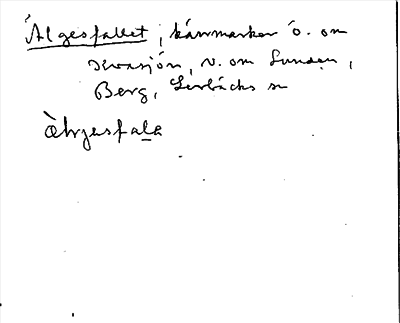 Älgesfallet, kärrmarken ö. om
Svasjön, v. om Lunden,
Berg, Lerbäcks sn
ælvgesfala